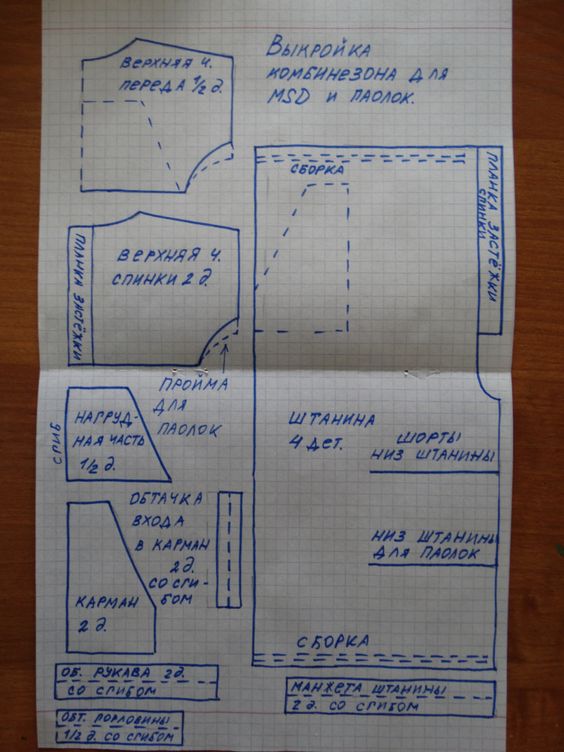 Выкройка
комбинезона для
MSD и паолок.
верхняя ч.
переда 1/2 д.
сборка
планка застёжки
спинки
верхняя ч.
спинки 2 д.
планка застёжки
пройма
для
паолок
нагруд-
ная часть
1/2 д.
сгиб
штанина
4 дет.
шорты
низ штанины
обтачка
входа
в карман
2 д.
со сги-
бом
низ штанины
для паолок
карман
2 д.
сборка
об. рукава 2 д.
со сгибом
манжета штанины
2 д. со сгибом
обт. горловины
1/2 д. со сгибом